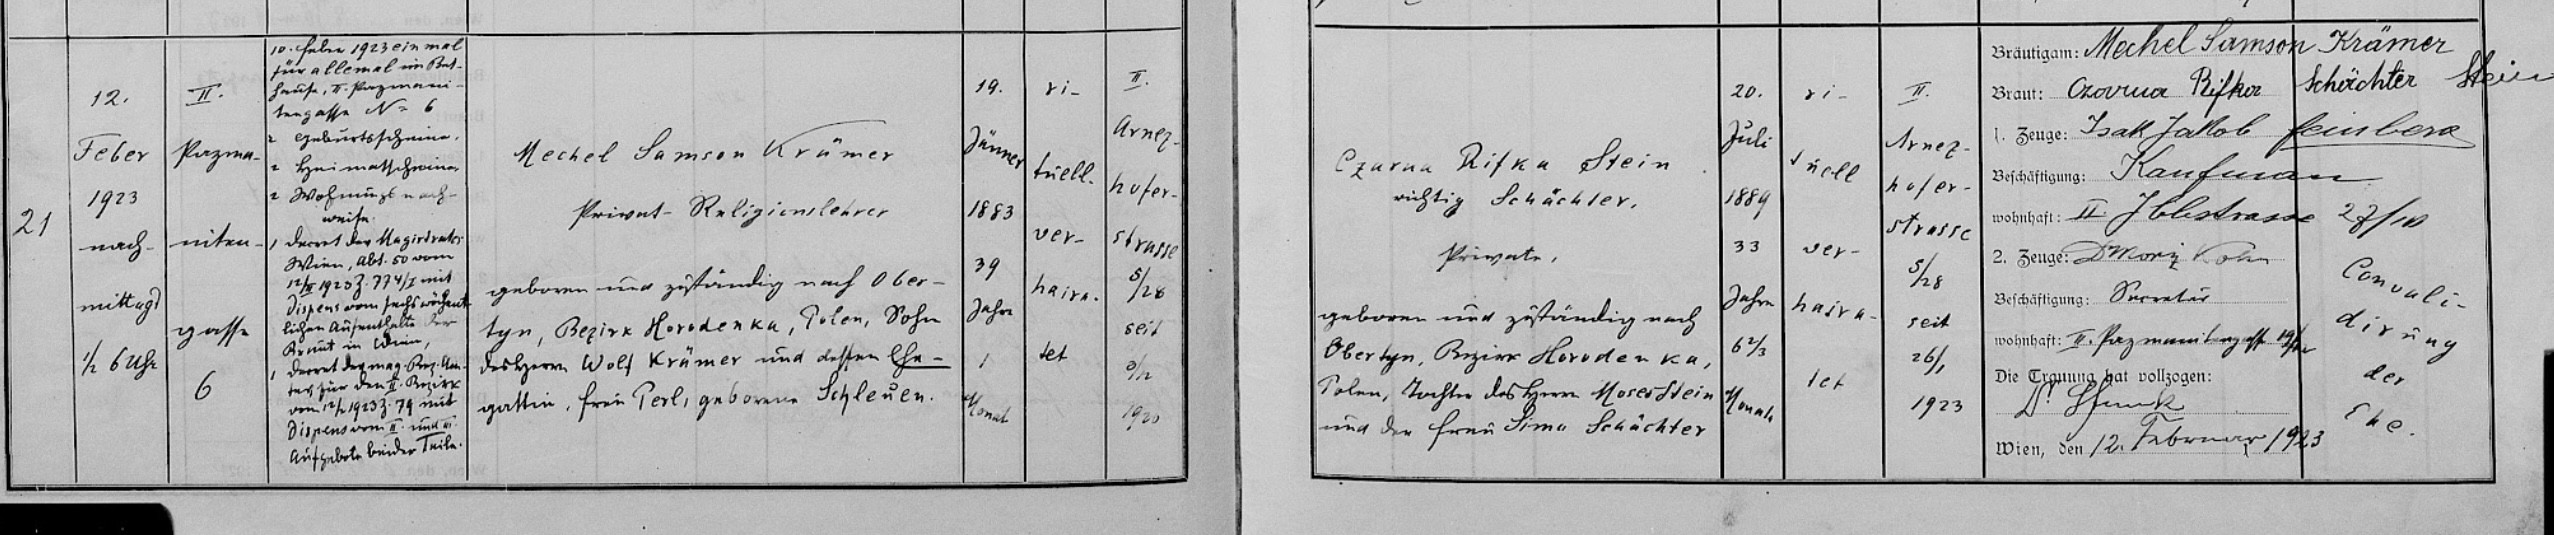 21
12.
Feber
1923
nach-
mittags
1/2 6 Uhr
II.
Pazma-
niten-
gasse
6
10. Feber 1923 ein mal
für allemal im Bet-
hause, II. Pazmani-
tengasse No 6
2 Geburtsscheine.
2 Heimatscheine
2 Wohnungsnach-
weise.
1 Decret des Magistrates
Wien, Abt. 50 vom
1923 Z. 774/I mit
Dispens vom sechswöchent-
lichen Aufenthalte der
Braut in Wien,
1 Decret des mag. Bez. Am-
tes für den II. Bezirk
vom 12/2 1923 Z. 79 mit
Dispens vom II. und III.
Aufgebote beider Teile.
Mechel Samson Krämer
Privat-Religionslehrer
geboren und zuständig nach Ober-
tyn, Bezirk Horodenka, Polen, Sohn
des Herrn Wolf Krämer und dessen Ehe-
gattin, Frau Perl, geborene Schleuen.
19.
Jänner
1883
39
Jahre
1
Monat
ri-
tuell
ver-
heira-
tet
II.
Arnez-
hofer-
strasse
5/28
seit
1920
Czarna Rifka Stein
richtig Schächter.
Private,
geboren und zuständig nach
Obertyn, Bezirk Horodenka,
Polen, Tochter des Herrn Moses Stein
und der Frau Sima Schächter
20.
Juli
1889
33
Jahre
6 2/3
Monate
ri-
tuell
ver-
heira-
tet
II.
Arnez-
hofer-
strasse
5/28
seit
26/1
1923
Bräutigam: Mechel Samson Krämer
Braut: Czarna Rifka Schächter Stein
1. Zeuge: Isak Jakob Feinberg
Beschäftigung: Kaufman
wohnhaft: II 27/10
2. Zeuge: Dr Moriz Kohn
Beschäftigung: Secretär
wohnhaft: II. Pazmanitengasse
Die Trauung hat vollzogen:
Dr.
Wien, den 12. Februar 1923
Convali-
dirung
der
Ehe.